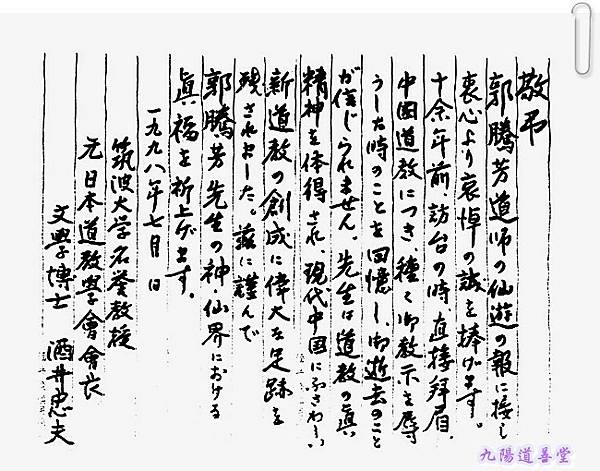 敬弔
郭騰芳道師の仙遊の報に接し
衷心より哀悼の誠を捧げます。
十余年前訪台の時、直接拜眉、
中国道教につき、種々御教示を辱
うした時のことを回憶し、御逝去のこと
が信じられません。先生は道教の真
精神を体得され、現代中国にふさわしい
新道教の創成に偉大な足跡を
残されました。茲に謹んで
郭騰芳先生の神・仙界における
眞福を祈上げます。
一九九八年七月 日
筑波大学名誉教授
元日本道教學會會長
文學博士 酒井忠夫
九陽道善堂